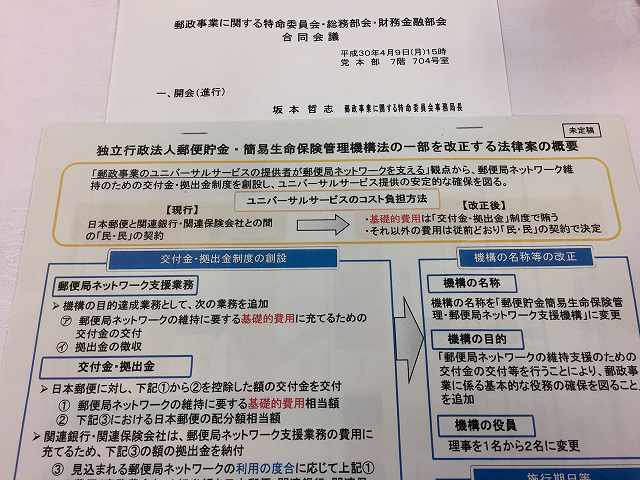 郵政事業に関する特命委員会・総務部会・財務金融部会
合同会議
平成30年4月9日(月)15時
党本部 7階 704号室
一、開会(進行)
坂本哲志 郵政事業に関する特命委員会事務局長
未定稿
独立行政法人郵便貯金・簡易生命保険管理機構法の一部を改正する法律案の概要
「郵政事業のユニバーサルサービスの提供者が郵便局ネットワークを支える」観点から、郵便局ネットワーク維
持のための交付金・拠出金制度を創設し、ユニバーサルサービス提供の安定的な確保を図る。
ユニバーサルサービスのコスト負担方法
【現行】
日本郵便と関連銀行・関連保険会社との間
の「民・民」の契約
【改正後】
・基礎的費用は「交付金・拠出金」制度で賄う
・それ以外の費用は従前どおり「民・民」の契約で決定
交付金・拠出金制度の創設
郵便局ネットワーク支援業務
➢機構の目的達成業務として、次の業務を追加
㋐ 郵便局ネットワークの維持に要する基礎的費用に充てるための
交付金の交付
㋑ 拠出金の徴収
交付金・拠出金
➢日本郵便に対し、下記①から②を控除した額の交付金を交付
① 郵便局ネットワークの維持に要する基礎的費用相当額
② 下記③における日本郵便の配分額相当額
➢関連銀行・関連保険会社は、郵便局ネットワーク支援業務の費用に
充てるため、下記③の額の拠出金を納付
③ 見込まれる郵便局ネットワークの利用の度合に応じて上記①
機構の名称等の改正
機構の名称
機構の名称を「郵便貯金簡易生命保険管
理・郵便局ネットワーク支援機構」に変更
機構の目的
「郵便局ネットワークの維持支援のための
交付金の交付等を行うことにより、郵政事
業に係る基本的な役務の確保を図ること」
を追加
機構の役員
理事を1名から2名に変更
施行期日等